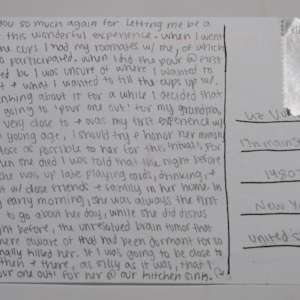 you so much again for letting me be a
this wonderful experience. when I went
the cups I had my roomates w/ me, of which
participated. when I did the pour @ first
I was unsure of where I wanted to
+ what I wanted to fill the cups up w/.
about it for a while I decided that
going to "pour one out" for my grandma,
very close to + was my first experience w/
young age, I should try + honor her
close as possible to her for this ritual. For
when she died I was told that the night before
she was up late playing cards, drinking, +
w/ close friends + family in her home. In
early morning, she was always the first
to go about her day, while she did dishes
before, the unresolved brain tumor that
were aware of that had been dormant for so
finally killed her. If I was going to be close to
then + there, as silly as it was, that I
pour one out for her @ our kitchen sink.
New Yo
United S